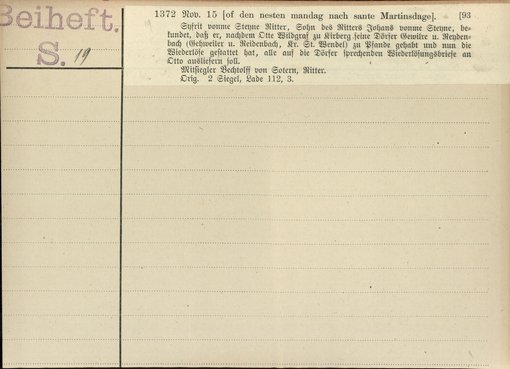 Beiheft.
S. 19
1372 Nov. 15 [of den nesten mandag nach sante Martinsdage]. [93
Syfrit vonme Steyne Ritter, Sohn des Ritters Johans vonme Steyne, be-
kundet, daß er, nachdem Otte Wildgraf zu Kirberg seine Dörfer Gewilre u. Reyden-
bach (Gehweiler u. Reidenbach, Kr. St. Wendel) zu Pfande gehabt und nun die
Wiederlöse gestattet hat, alle auf die Dörfer sprechenden Wiederlösungsbriefe an
Otto ausliefern soll.
Mitsiegler Bechtolff von Sotern, Ritter.
Orig. 2 Siegel, Lade 112, 3.